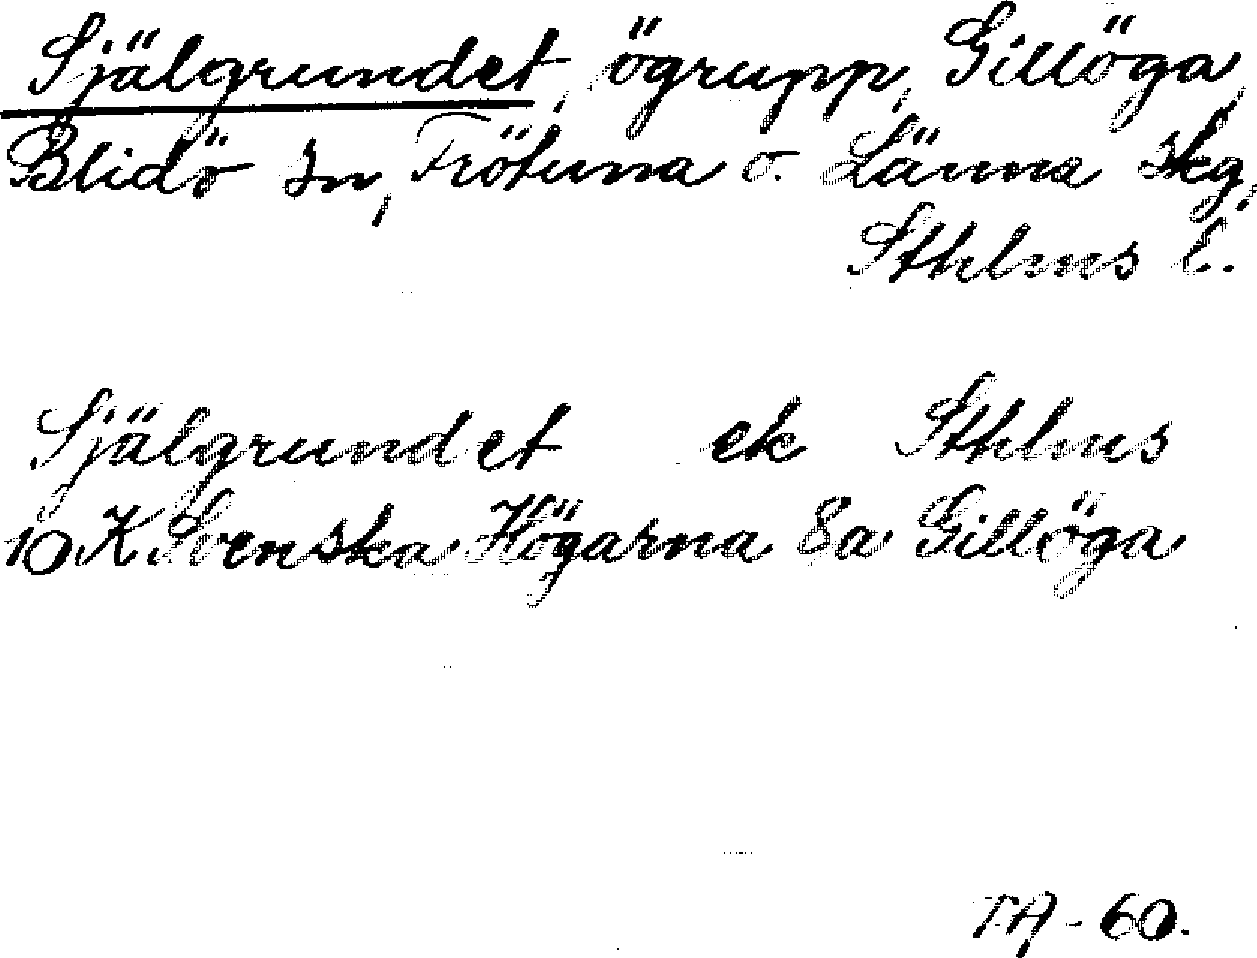 Själgrundet, ögrupp, Gillöga,
Blidö sn, Frötuna o. Länna skg,
Sthlms l.
Själgrundet ek Sthlms
10 K Svenska Högarna 8a Gillöga
TA-60.